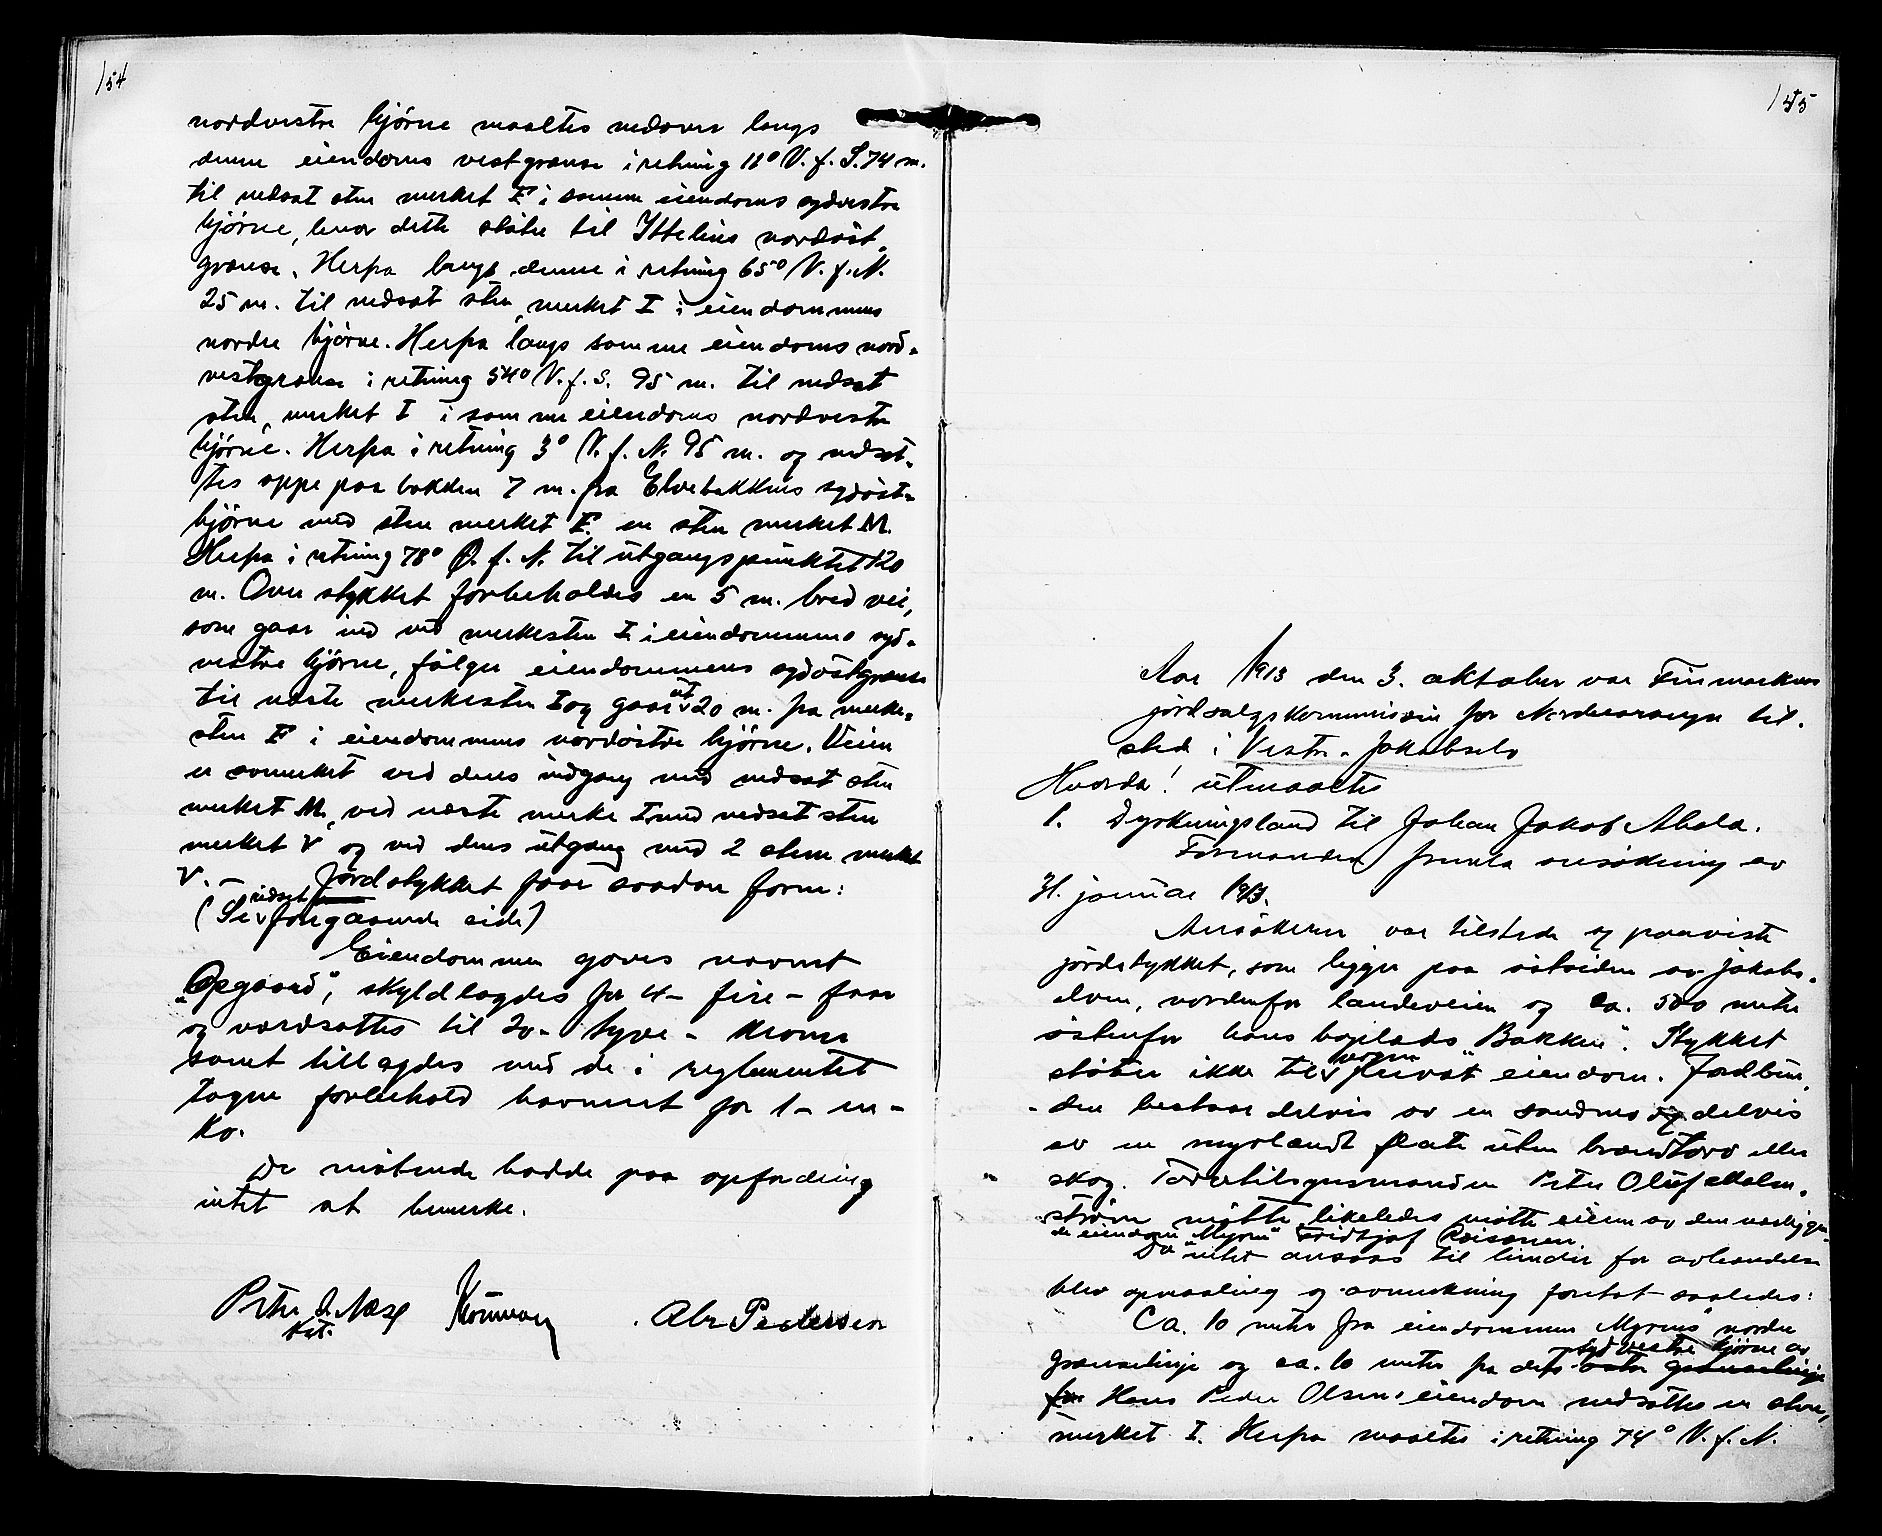 154
nordvestre hjörne maaltes nedover langs
denne eiendoms vestgrænse i retning 11° V. f. S. 74 m.
til nedsat sten merket F i samme eiendoms sydvestre
hjörne, hvor dette stöter til Ittelins nordöst-
grænse. Herfra langs denne i retning 65° V. f. N.
25 m. til nedsat sten, merket I i eiendommens
nordre hjörne. Herfra langs samme eiendoms nord-
vestgrænse i retning 54° V. f. S. 95 m. til nedsat
sten, merket I i samme eiendoms nordvestre
hjörne. Herfra i retning 3° V. f. N. 95 m. og nedsat-
tes oppe paa bakken 7 m. fra Elvebakkens sydöst-
hjörne med sten merket F. en sten merket M.
Herfra i retning 78° Ö. f. N. til utgangspunktet 120
m. Over stykket forbeholdes en 5 m. bred vei,
som gaar ind ved merkesten I i eiendommens syd-
vestre hjörne, fölger eiendommens sydöstgrænse
til næste merkesten I og gaar ut 20 m. fra merke-
sten F i eiendommens nordöstre hjörne. Veien
er avmerket ved dens indgang med nedsat sten
merket M, ved næste merke I med nedsat sten
merket V og ved dens utgang med 2 stene merket
V. – Jordstykket faar saadan form:
(Se forgaaende side)
Eiendommen gaves navnet
„Opgaard", skyldlagdes for 4 – fire – fore
og værdsattes til 20 – tyve – kroner
samt tillagdes med de i reglementet
tagne forbehold havneret for 1 – en –
ko.
De mötende hadde paa opfordring
intet at bemerke.
Abr Pedersen
155
Aar 1913 den 3. oktober var Finmarkens
jordsalgskommission for Nordvaranger til-
stede i Vestre-Jakobselv
Hvorda! utmaaltes
1. Dyrkningsland til Johan Jakob Abela.
Formanden fremla ansökning av
31. januar 1913.
Ansökeren var tilstede og paaviste
jordstykket, som ligger paa östsiden av Jakobs-
elven, nordenfor landeveien og ca. 500 meter
östenfor hans boplads „Bakken". Stykket
stöter ikke til nogen privat eiendom. Jordbun-
den bestaar delvis av en sandmo og delvis
av en myrlændt flate uten brændtorv eller
skog. Torvtilsynsmanden Peter Oluf Malm-
ström mötte likeledes mötte eieren av den nærliggen-
de eiendom „Myrni" Fridtjof Roisanen.
Da intet ansaaes til hinder for avhændelse
blev opmaaling og avmerkning foretat saaledes:
Ca. 10 meter fra eiendommen „Myrnis" nordre
grænselinje og ca. 10 meter fra dets östre grænselinje sydvestre hjörne av
fra Hans Peder Olsens eiendom nedsattes en sten,
merket I. Herfra maaltes i retning 74° V. f. N.